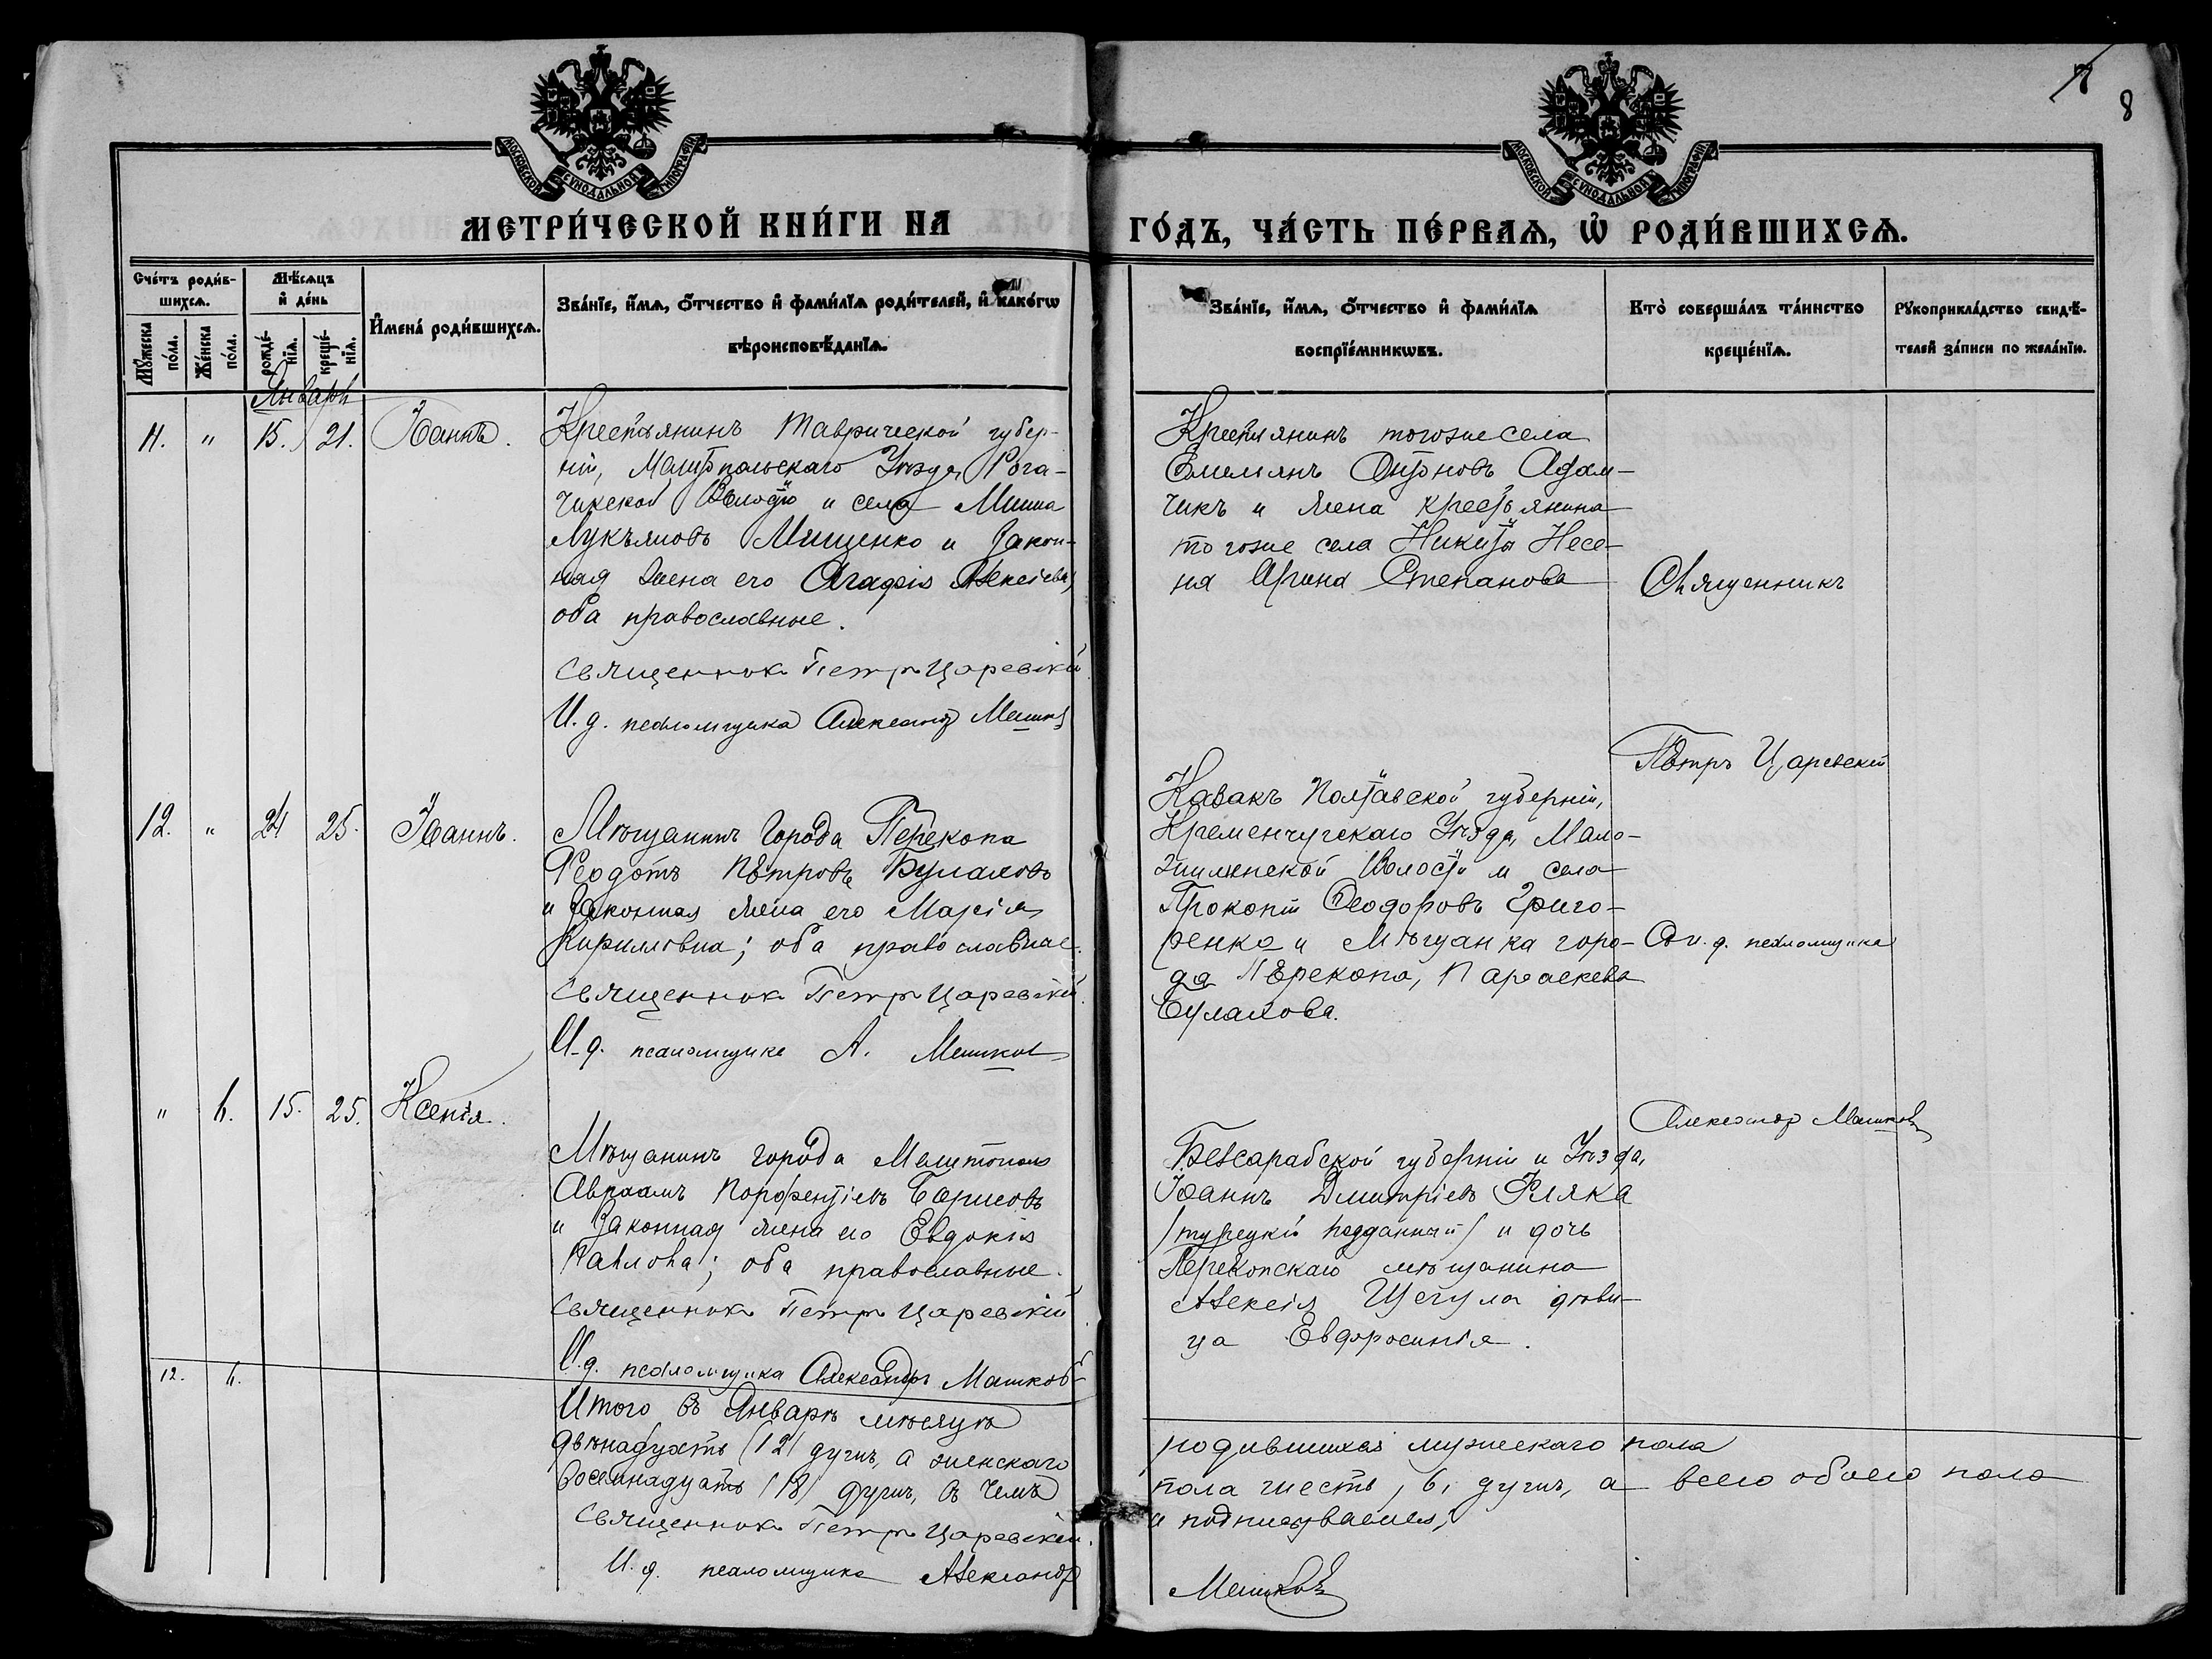 7
8
МОСКОВСКОЙ СѴНОДАЛЬНОЙ ТИПОГРАФІИ
МОСКОВСКОЙ СѴНОДАЛЬНОЙ ТИПОГРАФІИ
МЕТРИ́ЧЕСКОЙ КНИ́ГИ НА
ГО́ДЪ, ЧА́СТЬ ПЕ́РВАѦ, Ѡ҆ РОДИ́ВШИХСѦ.
Сче́тъ роди́в-
шихсѧ.
Мꙋ́жеска по́ла.
Же́нска по́ла.
Мѣ́сѧцъ
и҆ де́нь
рожде́-
нїѧ.
креще́-
нїѧ.
И҆мена̀ роди́вшихсѧ.
Зва́нїе, и҆́мѧ, ѻ҆́тчество и҆ фами́лїѧ роди́телей, и҆ како́гѡ
вѣроисповѣ́данїѧ.
Зва́нїе, и҆́мѧ, ѻ҆́тчество и҆ фами́лїѧ
воспрїе́мникѡвъ.
Кто̀ соверша́лъ та́инство
креще́нїѧ.
Рꙋкоприкла́дство свидѣ́-
телей за́писи по жела́нїю.
Январь
11. " 15. 21. Іоаннъ.
Крестьянинъ Таврической губер-
ніи, Мелитопольскаго Уѣзда, Рога-
чикской Волости и села Миша
Лукъяновъ Мищенко и закон-
ная жена его Агафія Алексіева,
оба православные.
Священник Петр Царевскій
И. д. псаломщика Александр Машков
Крестьянинъ тогоже села
Емельянъ Антоновъ Адам-
чикъ и жена крестьянина
тогоже села Никиты Несе-
на Ирина Степанова
Священникъ
Петръ Царевскій
12. " 24 25. Іоаннъ.
Мѣщанинъ города Перекопа
Ѳеодотъ Петровъ Булаховъ
и законная жена его Марія
Кириллова; оба православные.
Священник Петр Царевскій.
И. д. псаломщика А. Машков
Казакъ Полтавской губерніи,
Кременчугскаго Уѣзда, Мало-
Волости и села
Прокопій Ѳеодоровъ Григо-
ренко и Мѣщанка горо-
да Перекопа, Параскева
Булахова.
и. д. псаломщика
Александр Машков
" 6. 15. 25. Ксенія.
Мѣщанинъ города Мелитополя
Авраамъ Порфентіевъ Борисовъ
и законная жена его Евдокія
Павлова; оба православные.
Священник Петр Царевскій
И. д. псаломщика Александръ Машковъ
Бессарабской губерніи и Уѣзда,
Іоаннъ Дмитріевъ Фляка
(турецкій подданный) и дочь
Перекопскаго мѣщанина
Алексія Щегула дѣви-
ца Евфросинія.
12. 6.
Итого въ Январѣ мѣсяцѣ родившихся мужескаго пола
двѣнадцать (12) душъ, а женскаго пола шесть, 6, душъ, а всего обоего пола
восемнадцать (18) душъ, въ чемъ и подписуваемся,
Священник Петр Царевскій.
И. д. псаломщика Александр Машковъ